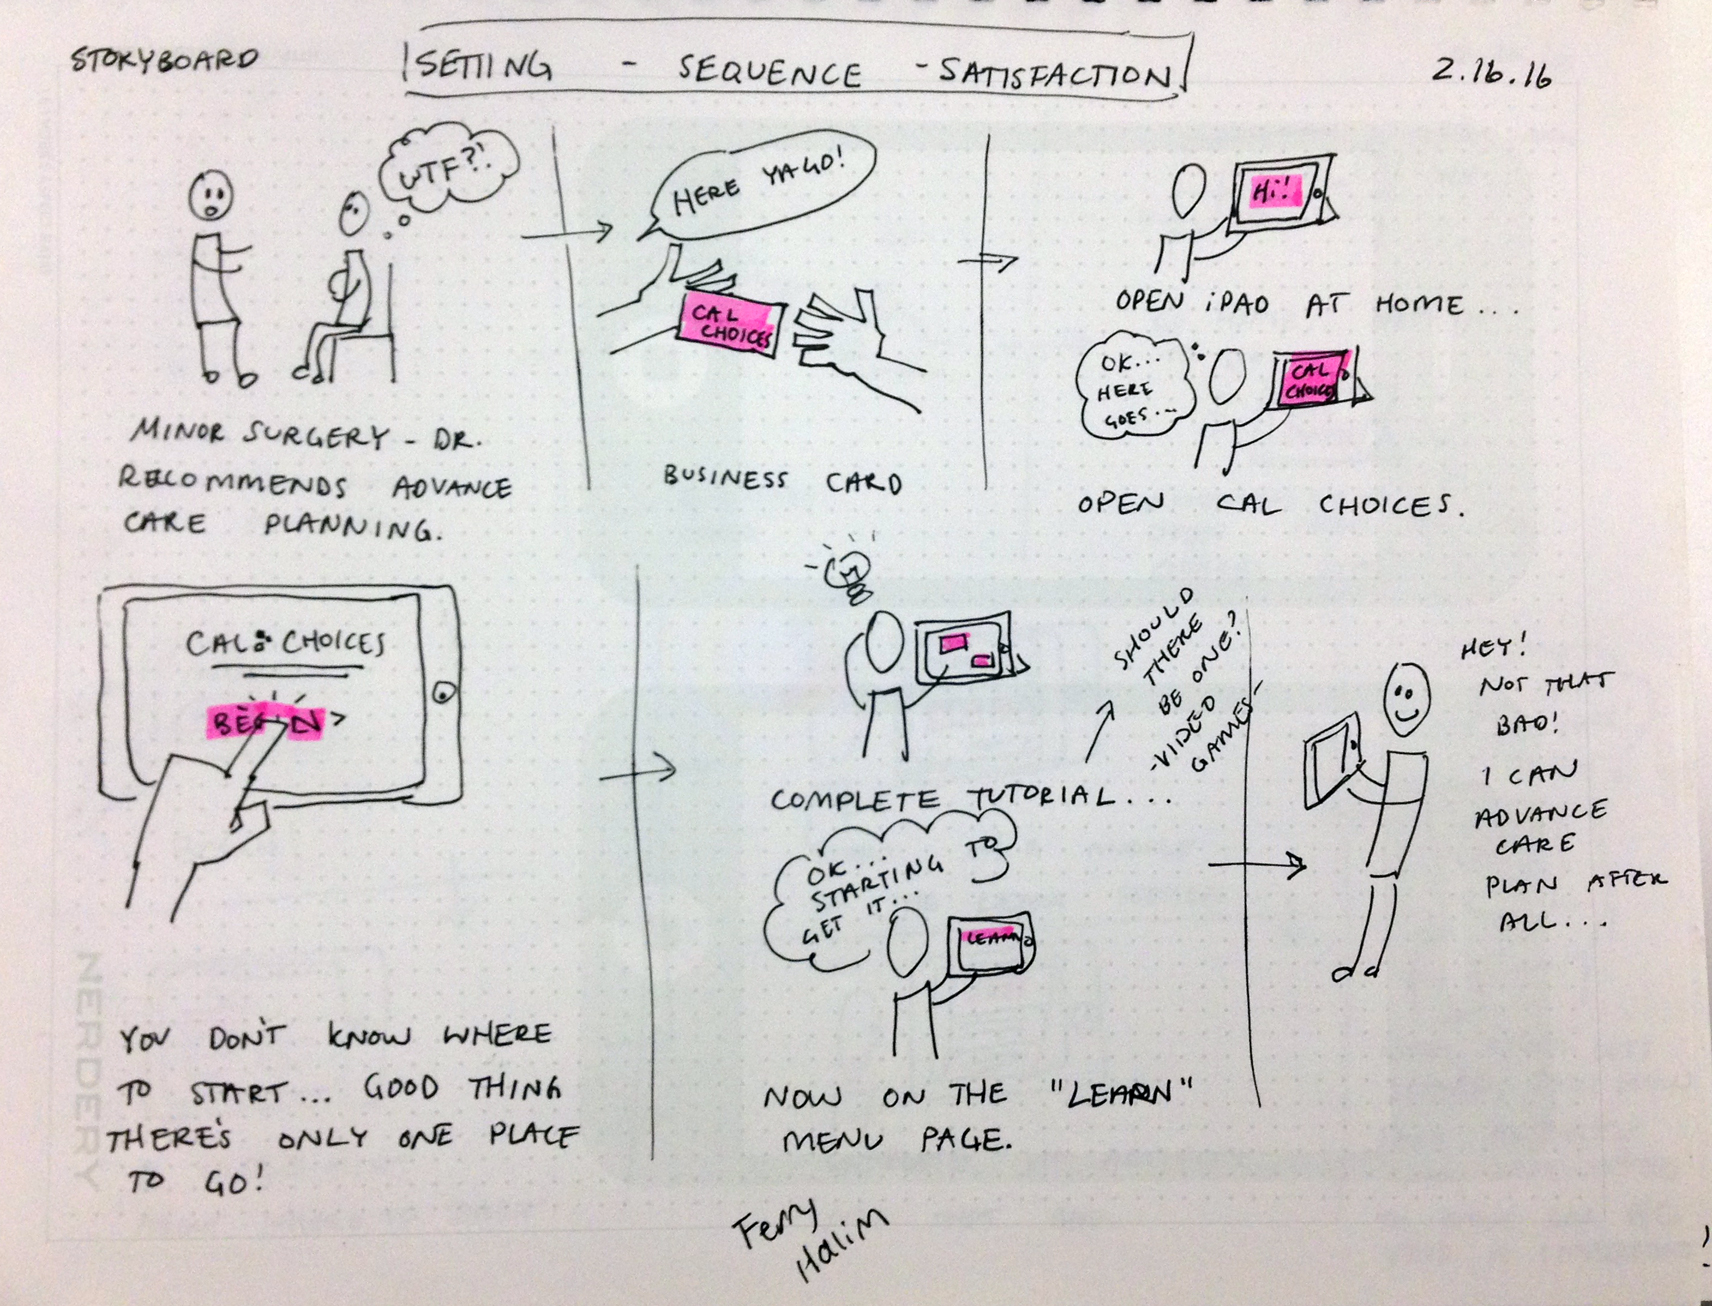 STORYBOARD
SETTING - SEQUENCE - SATISFACTION
2.16.16
WTF?!
MINOR SURGERY - DR.
RECOMMENDS ADVANCE
CARE PLANNING.
HERE YA GO!
CAL
CHOICES
BUSINESS CARD
Hi!
OPEN iPAD AT HOME...
OK...
HERE
GOES...
CAL
CHOICES
OPEN CAL CHOICES.
CAL CHOICES
BEGIN >
YOU DON'T KNOW WHERE
TO START... GOOD THING
THERE'S ONLY ONE PLACE
TO GO!
COMPLETE TUTORIAL...
SHOULD
THERE
BE ONE?
- VIDEO
GAMES -
OK...
STARTING TO
GET IT...
LEARN
NOW ON THE "LEARN"
MENU PAGE.
HEY!
NOT THAT
BAD!
I CAN
ADVANCE
CARE
PLAN AFTER
ALL...
NERDERY
Ferry
Halim